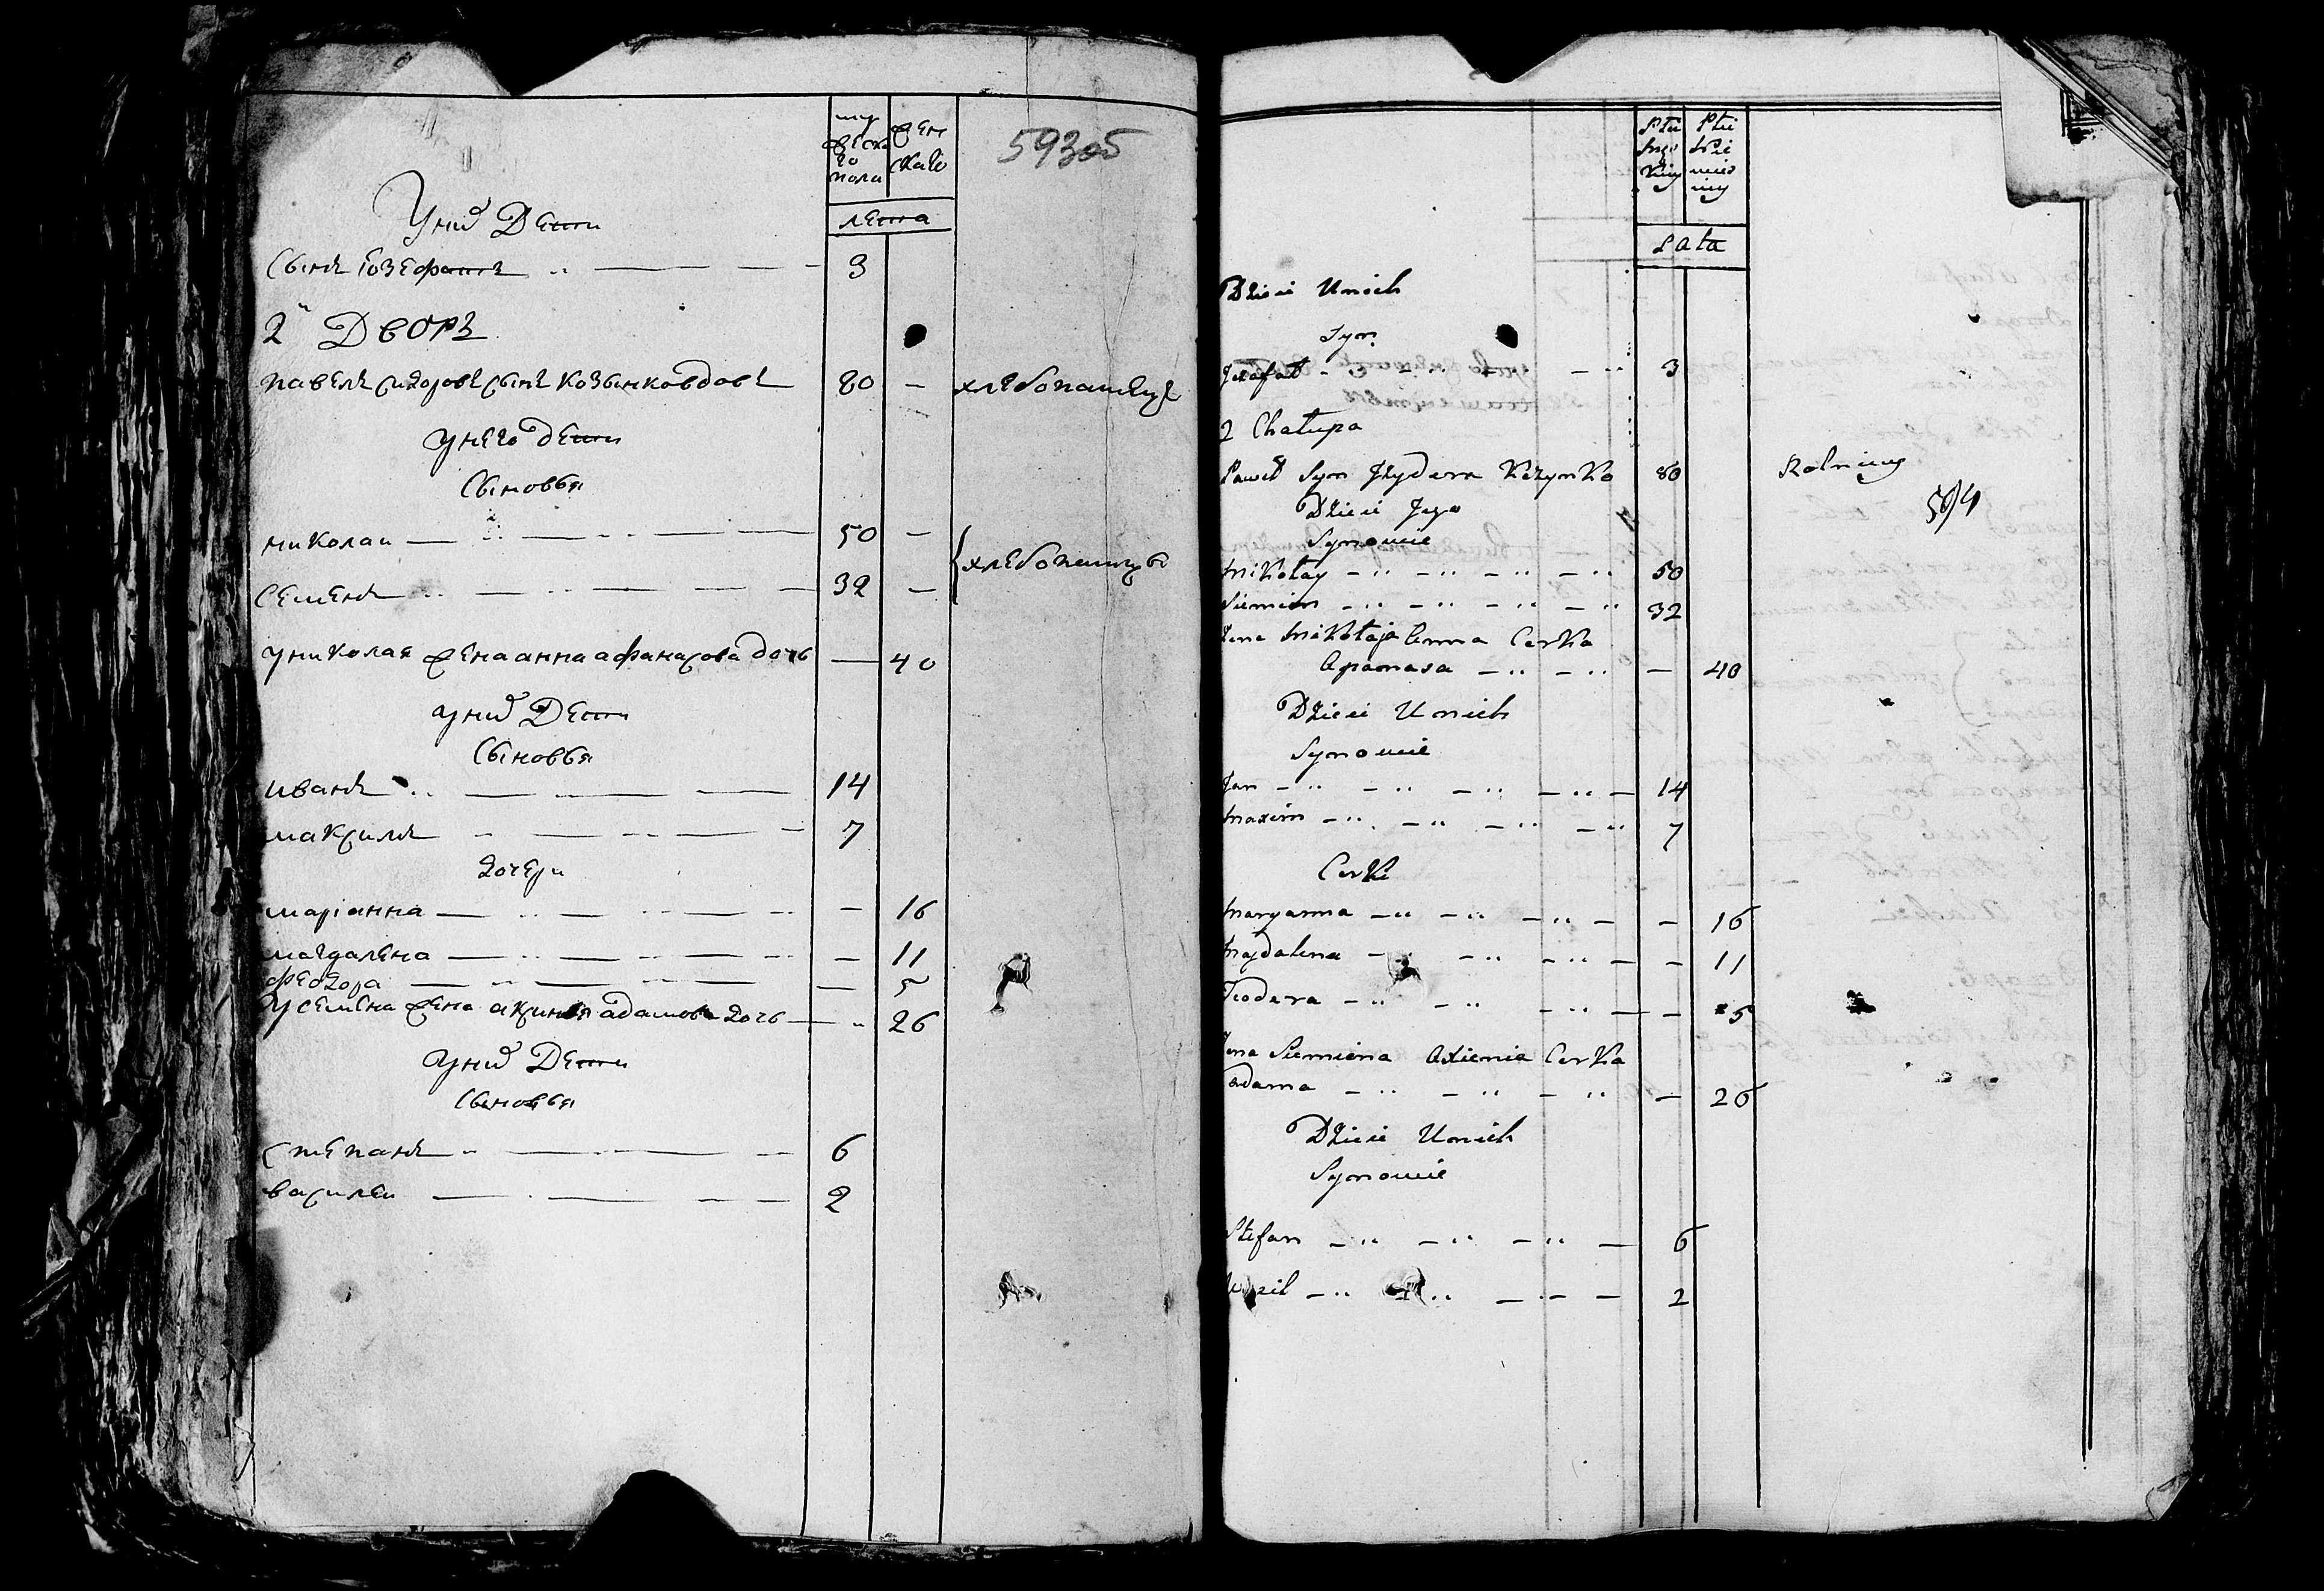 му жеска го пола
жен скаго
593об
лета
У них Дети
Сынъ Іозефатъ 3
2й Дворъ
Павелъ Сидоровъ Сынъ 80 — хлебопашецъ
У него дети
Сыновья
Николаи 50 —
Семенъ 32 —
хлебопашцы
У Николая жена анна афанасова дочь — 40
У них Дети
Сыновья
Иванъ 14
Максимъ 7
дочери
Маріанна — 16
Магдалена — 11
Феодора — 5
У Семена жена аксинья адамова дочь — 26
У них Дети
Сыновья
Степанъ 6
Василеи 2
Płci Męs kiey
Płci Nie wies ciey
Lata
Dzieci Unich
Syn
Jozafat 3
2 Chałupa
Paweł Syn Jzydora Kozynko 80 Rolniczy
594
Dzieci Jego
Synowie
Mikołay 50
Siemion 32
Żona Mikołaja Anna Corka
Apanasa — 40
Dzieci Unich
Synowie
Jan 14
Maxim 7
Corki
Maryanna — 16
Magdalena — 11
Teodora — 5
Żona Siemiona Axienia Corka
Adama — 26
Dzieci Unich
Synowie
Stefan 6
Wasil 2